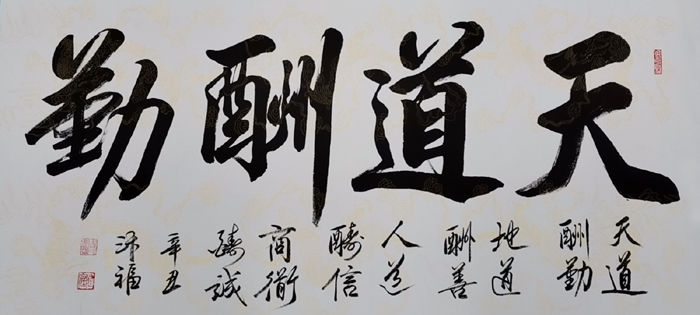 天道酬勤
天道
酬勤
地道
酬善
人道
醻信
商衟
誠
辛丑
沛福